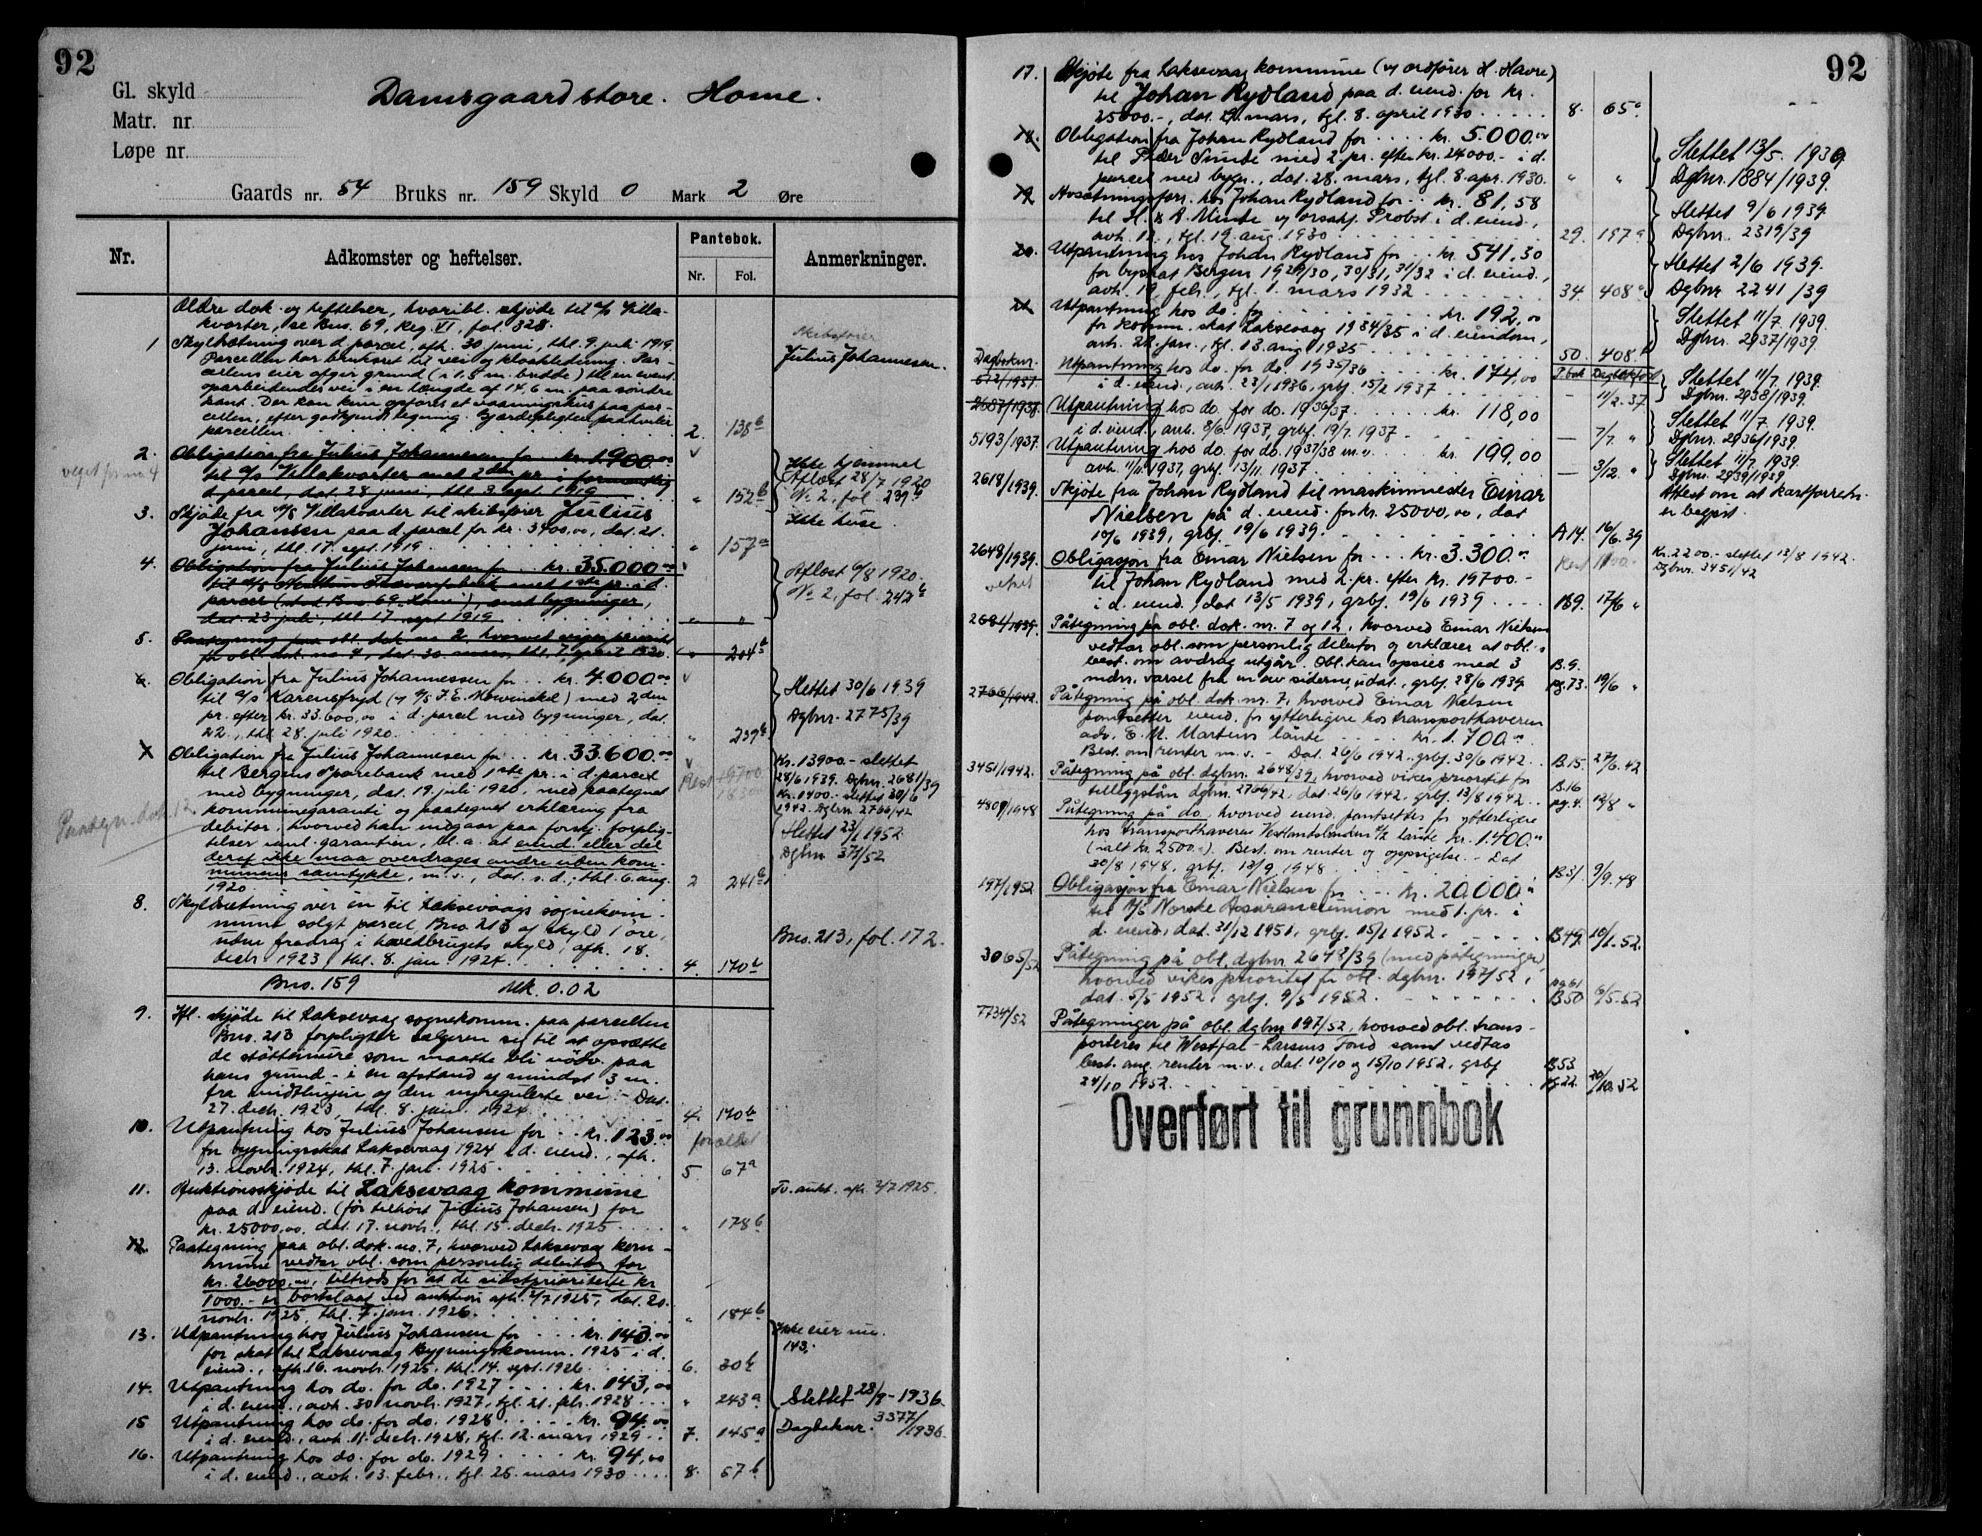 92
Gl. skyld
Damsgaard store. Home.
Matr. nr.
Løpe nr.
Gaards nr. 54 Bruks nr. 159 Skyld 0 Mark 2 Øre
Nr.
Adkomster og heftelser.
Pantebok.
Nr. Fol.
Anmerkninger.
Ældre dok. og heftelser, hvoribl. skjøde til a/s Villa-
kvarter, se Bno. 69, Reg. VI, fol. 328.
1 Skyldsætning over d. parcel, afh. 30 juni, thl. 9. juli 1919.
Parcellen har bruksret til vei og kloakledning. Par-
cellens eier afgir grund (i 1,5 m. bredde) til en event.
oparbeidendes vei i en længde af 14,6 m. paa søndre
kant. Der kan kun opføres et vaaningshus paa par-
cellen, efter godkjend tegning. Gjerdepligten paahviler
parcellen. 2. 138b
Skibsfører
Julius Johannesen.
2. Obligation fra Julius Johannesen for kr. 1900.00
til a/s Villakvarter med 2den pr. i formentlig
d. parcel, dat. 28 juni, thl. 3. sept. 1919 " 152b
veget for no. 4
Ikke hjemmel
Afløst 28/7 1920
No. 2, fol. 239b
3. Skjøde fra a/s Villakvarter til skibsfører Julius
Johansen paa d. parcel for kr. 3400,00, dat. 21.
juni, thl. 17. sept. 1919. " 157a
Ikke huse.
4. Obligation fra Julius Johansen for kr. 35.000.00
til a/s med 1ste pr. i d.
parcel (med Bno. 69 ), samt bygninger,
dat. 23 juli, thl. 17. sept. 1919 " "
Afløst 6/8 1920.
No. 2, fol. 242b
5. Paategning paa obl. dok. no. 2, hvorved viger prioritet
for obl. dok. no. 4, dat. 30. mars, thl. 7. april 1920. " 204b
6. Obligation fra Julius Johannessen for kr. 4000.00
til a/s Karensfryd (v/ a/s F. E. Mowinckel) med 2den
pr. efter kr. 33.600,00 i d. parcel med bygninger, dat.
22., thl. 28. juli 1920. " 239b
Slettet 30/6 1939
Dgbnr. 2775/39
7 Obligation fra Julius Johannesen for kr. 33600.00
til Bergens Sparebank med 1ste pr. i d. parcel
med bygninger, dat. 19. juli 1920, med paategnet
kommunegaranti og paategnet erklæring fra
debitor, hvorved han indgaar paa forskj. forplig-
telser saml. garantien, bl. a. at eiend. eller del
deraf ikke maa overdrages andre uten kom-
munens samtykke, m. v., dat. s. d., thl. 6. aug.
1920. 2 241b
Rest 19700
Kr. 13900.- slettet
28/6 1939. Dgbnr. 2681/39
Kr. 1400.- slettet 30/6
1942. Dgbnr. 2766/42
Slettet 23/1 1952
Dgbnr. 371/52
8. Skyldsætning over en til Laksevaags sognekom-
mune solgt parcel, Bno. 213 af skyld 1 øre,
uten fradrag i hovedbrugets skyld, afh. 18.
decb. 1923, thl. 8. jan. 1924. 4. 170b
Bno. 213, fol. 172.
Bno. 159 Mk. 0.02
9. Ifl. skjøde til Laksevaag sognekomm. paa parcellen
Bno. 213 forpligter sælgeren sig til at opsætte
de støttemure som maatte bli nødv. paa
hans grund - i en afstand af mindst 3 m.
fra midtlinjen af den nyregulerte vei - Dat.
27. decb. 1923, thl. 8. jan. 1924. 4. 170b
10. Utpantning hos Julius Johansen for kr. 123.00
for bygningsskat Laksevaag 1924 i d. eiend., afh.
13. novb. 1924, thl. 7. jan. 1925. 5 67a
foræltet
11. Auktionsskjøde til Laksevaag kommune
paa d. eiend. (før tilhørt Julius Johansen) for
kr. 25000,00, dat. 17. novb., thl. 15. decb. 1925 " 178b
Tv. aukt. afh. 2/7 1925.
12. Paategning paa obl. dok. no. 7, hvorved Laksevaag kom-
mune vedtar obl. som personlig debitor for
kr. 26000,00, tiltrods for at de sidstprioriterte kr.
1000.- er bortslaat ved auktion afh. 2/7 1925, dat. 20.
novb. 1925, thl. 7. jan. 1926. " 184b
13. Utpantning hos Julius Johansen for kr. 143.00
for skat til Laksevaag Bygningskomm. 1925 i d.
eiend., afh. 16. novb. 1925, thl. 14. sept. 1926 6. 30b
Ikke eier nu.
143,-
14. Utpantning hos do. for do. 1927 kr. 143,00
i d. eiend., avh. 30 novb. 1927, tgl. 21. feb. 1928 " 243a
15 Utpantning hos do. for do. 1928 kr. 94.00
i d. eiend., avh. 11. decb. 1928, tgl. 12. mars 1929 7. 145a
16. Utpantning hos do. for do. 1929 kr. 94,00
i d. eiend., avh. 13. febr., tgl. 25. mars 1930 8. 57b
Slettet 28/9 - 1936.
Dagboknr. 3377/1936.
92
17. Skjøte fra Laksevaag kommune (v/ ordfører H. Havre)
til Johan Rydland paa d. eiend. for kr.
25000.-, dat. 21. mars, tgl. 8. april 1930 8. 65a
18. Obligation fra Johan Rydland for kr. 5.000.00
til Peder Sunde med 2. pr. efter kr. 24000.- i d.
parcel med bygn., dat. 28. mars, tgl. 8 apr. 1930. " "
Slettet 13/5. 1939
Dgbnr. 1884/1939.
19 Avsætningsforr. hos Johan Rydland for kr. 81,58
til H. & R. Minde og orsakf. Probst i d. eiend.,
avh. 12., tgl. 19. aug. 1930 29. 197a
Slettet 9/6 1939.
Dgbnr. 2319/39
20. Utpantning hos Johan Rydland for kr. 541,30
for byskat Bergen 1929/30, 30/31, 31/32 i d. eiend.,
avh. 19. feb., tgl. 1. mars 1932 34. 408a
Slettet 2/6 1939.
Dgbnr 2241/39
21. Utpantning hos do. for kr. 192,00
for komm. skat Laksevaag 1934/35 i d. eiendom,
avh. 28. jan., tgl. 13. aug 1935 50. 408b
Slettet 11/7. 1939.
Dgbnr. 2937/1939.
Dagboknr.
P.bok Dagbokført
672/1937 Utpantning hos do. for do. 1935/36 kr. 174,00
i d. eiend., avh. 23/1 1936, grbf. 15/2 1937 - 11/2. 37
Slettet 11/7. 1939.
Dgbnr. 2938/1939.
2687/1937. Utpantning hos do. for do. 1936/37 kr. 118,00
i d. eiend., avh. 8/6. 1937, grbf. 19/7. 1937 - 7/7. "
Slettet 11/7. 1939.
Dgbnr. 2936/1939.
5193/1937. Utpantning hos do. for do. 1937/38 m.v. kr. 199,00
avh. 11/11. 1937, grbf. 13/11. 1937 - 3/12. "
Slettet 11/7. 1939.
Dgbnr. 2939/1939
2618/1939. Skjøte fra Johan Rydland til maskinmester Einar
Nielsen på d. eiend. for kr. 25000,00, dat
10/6 1939, grbf. 19/6 1939. A14. 16/6. 39
Attest om at kartforretn.
er begjært.
2648/1939. Obligasjon fra Einar Nielsen for kr. 3.300.00
veket til Johan Rydland med 2. pr. efter kr. 19700.-
i d. eiend., dat 13/5 1939, grbf. 19/6 1939 B9. 17/6 "
Rest 1100.-
Kr. 2200.- slettet 13/8 1942.
Dgbnr. 3451/42
2681/1939. Påtegning på obl. dok. nr. 7 og 12, hvorved Einar Nielsen
vedtar obl. som personlig debitor og erklærer at obl.s
best. om avdrag utgår. Obl. kan opsies med 3 B.9.
mdrs. varsel fra en av sidene, udat., grbf. 28/6 1939. pg. 73. 19/6 "
2766/1942. Påtegning på obl. dok. nr. 7, hvorved Einar Nielsen
pantsetter eiend. for ytterligere hos transporthaveren
adv. E. M. Martens lånte kr. 1.700.00
Best. om renter m.v. - Dat. 26/6 1942, grbf. 30/6 1942. B.15. 27/6. 42
3451/1942. Påtegning på obl. dgbnr. 2648/39, hvorved vikes prioritet for B.16
tilleggslån dgbnr. 2766/42, dat. 26/6 1942, grbf. 13/8 1942. pg. 4. 12/8 "
4809/1948 Påtegning på do. hvorved eiend. pantsettes for ytterligere
hos transporthaveren Vestlandsbanken a/s lånte kr. 1.400.00
(ialt kr. 2500.-). Best. om renter og oppsigelse. - Dat
30/8 1948, grbf. 13/9 1948 B31. 9/9. 48
197/1952 Obligasjon fra Einar Nielsen for kr. 20.000.00
til A/S Norske Assuranceunion med 1. pr. i
d. eiend., dat. 31/12 1951, grbf. 15/1 1952. B49. 10/1. 52.
3065/52 Påtegning på obl. dgbnr. 2648/39 (med påtegninger),
hvorved vikes prioritet for obl. dgbnr. 197/52, pg 61
dat. 5/5 1952, grbf. 9/5 1952. B50 6/5-52
7734/52 Påtegninger på obl. dgbnr 197/52, hvorved obl. trans-
porteres til Westfal-Larsens Fond samt vedtas
best. ang. renter m.v., dat. 10/10 og 15/10 1952, grbf. B53
24/10 1952. pg. 22. 20/10. 52
Overført til grunnbok